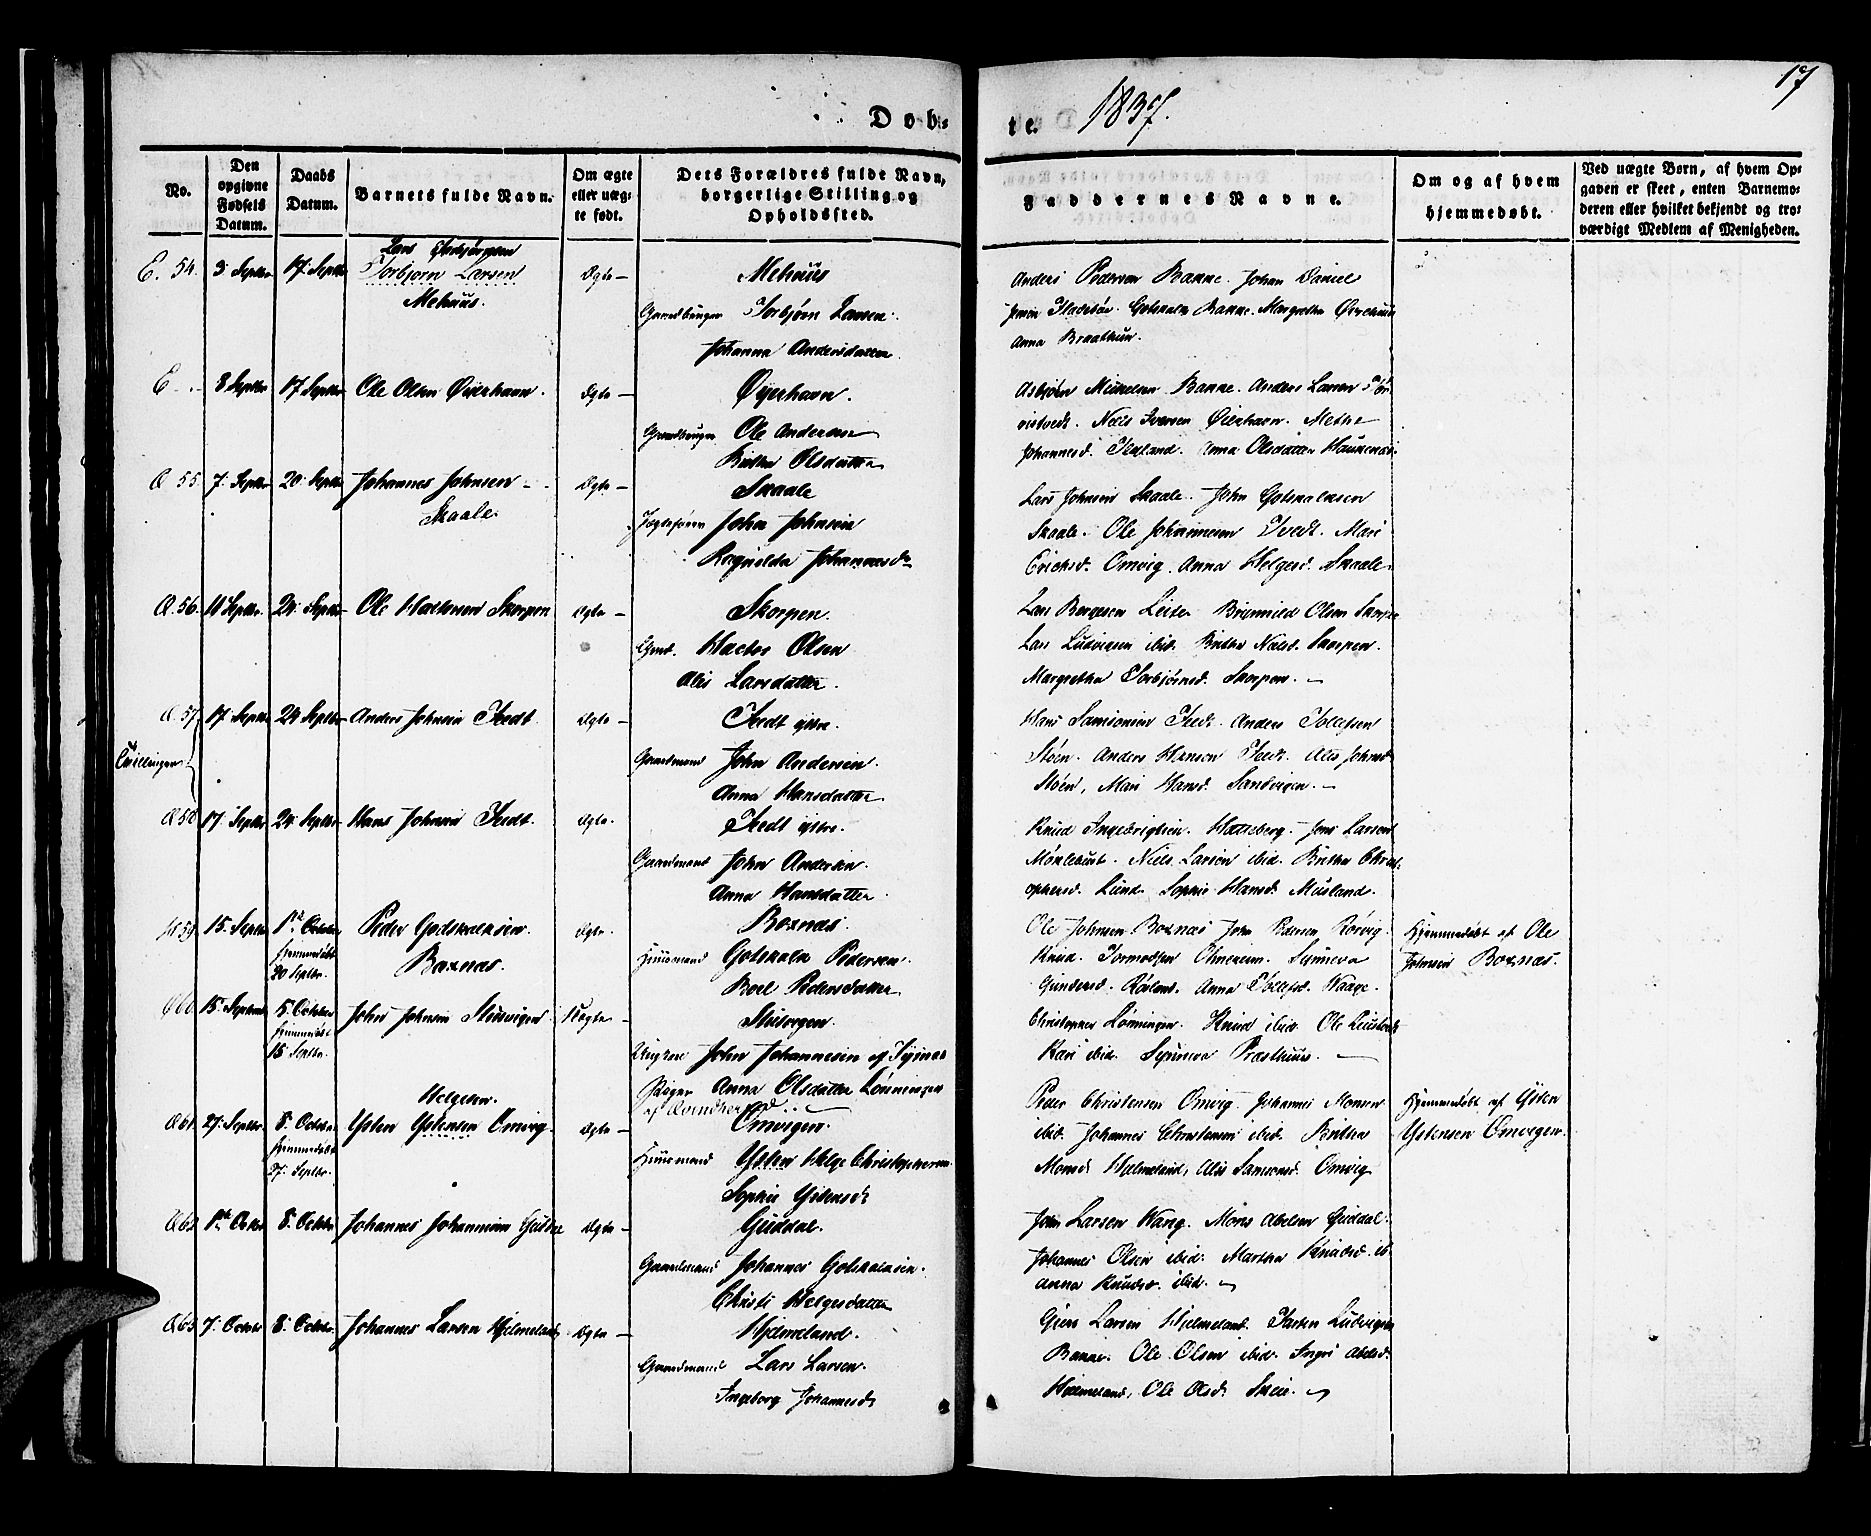 17
Døb-
te. 1837.
No.
Den opgivne Fødsels Datum.
Daabs Datum.
Barnets fulde Navn.
Om ægte eller uægte født.
Dets Forældres fulde Navn, borgerlige Stilling og Opholdssted.
Faddernes Navne.
Om og af hvem hjemmedøbt.
Ved uægte Børn, af hvem Opgaven er skeet, enten Barnemoderen eller hvilket bekjendt og troværdigt Medlem af Menigheden.
E. 54. 3 Septbr 17 Septbr
Torbjørn Larsen
Mehuus.
Ægte
Mehuus
Torbjørn Larsen.
Johanna Andersdatter.
Anders Pedersen Bakke. Johan Daniel
Gotskalk Bakke. Margretha
Anna Braathun.
E 8 Septbr 17 Septbr Ole Olsen Øyerhavn. Ægte
Øyerhavn.
Ole Andersen
Britha Olsdatter
Asbjørn Mickelsen Bakke. Anders Larsen
Niels Iversen Øierhavn. Metha
Johannesd. Anna Olsdatter
Q 55 7 Septbr 20 Septbr Johannes Johnsen
Skaale.
Ægte
Skaale
John Johnsen
Ragnilda Johannesdr
Lars Johnsen Skaale. John Gotskalksen
Skaale. Ole Johannesen Tvedt. Mari
Erichsd. Omvig. Anna Helgesd. Skaale.
Q. 56 11 Septbr. 24 Septbr Ole Hactorsen Skorpen Ægte
Skorpen.
Hactor Olsen
Alis Larsdatter.
Lars Borgesen Leite Brynnild Olsen Skorpen
Lars Ludvigsen ibid. Britha Nielsd. Skorpen.
Margretha Torbjørnsd. Skorpen.
Q 57 17 Septbr 24 Septbr Anders Johnsen Tvedt Ægte
Tvillinger
Tvedt østre.
Gaardmand John Andersen.
Anna Hansdatter.
Hans Samsonsen Tvedt. Anders Tollefsen
Støen. Anders Hansen Tvedt. Alis Johnsd.
Støen, Mari Hansd. Sandvigen.
Q 58 17 Septbr 24 Septbr Hans Johnsen Tvedt. Ægte.
Tvedt østre.
Gaardmand John Andersen.
Anna Hansdatter.
Knud Ingebrigtsen. Hatteberg. Jens Larsen
Niels Larsen ibid. Britha Christ-
ophersd. Lund. Sophie Hansd. Musland.
59 15. Septbr 1ste October
hjemmedøbt
20 Septbr.
Peder Godskalksen.
Boxnæs.
Ægte.
Boxnæs.
Huusmand Gotskalk Pedersen.
Boel Pedersdatter
Ole Johnsen Boxnæs John Pedersen Rørvig.
Knud Tormodsen Synneva
Gundersd. Røiland. Anna Tollefsd. Waage.
Hjemmedøbt af Ole
Johnsen Boxnæs.
Q 60 15 Septembr 5 October
hjemmedøbt
15 Septbr.
John Johnsen Uægte
Ungkarl John Johannesen af
Piger Anna Olsdatter Lønningen
Christopher Lønningen. Knud ibid. Ole
Kari ibid. Synneva Præsthuus.
Q 61 27 Septbr. 8 October
hjemmedøbt
27 Septbr.
Helgesen.
Ysten Ystensen Omvig. Ægte
Omvigen.
Huusmand Ysten Helge Christophersen
Sophie Ystensdr
Peder Christensen Omvig. Johannes Monsen
ibid. Johannes Christensen ibid. Britha
Monsd Hielmeland, Alis Samsonsd. Omvig
Hjemmedøbt af Ysten
Ystensen Omvigen.
Q 62 1ste Octbr 8. Octobr Johannes Johannesen Guddal Ægte
Guddal.
Gaardmand Johannes Gotskalksen.
Christi Helgesdatter
John Larsen Wang. Mons Abelsen Guddal.
Johannes Olsen ibid. Martha Knudsd. ib.
Anna Knudsd. ibid.
Q 63 7. Octobr 8. Octobr. Johannes Larsen Hjelmeland Ægte
Hjelmeland.
Gaardmand Lars Larsen.
Ingeborg Johannesdr
Larsen Hjelmeland. Torsten Ludvigsen
Bakke. Ole Olsen ibid. Ingri Abelsd.
Hjelmeland, Ole Olsd. Skeie.